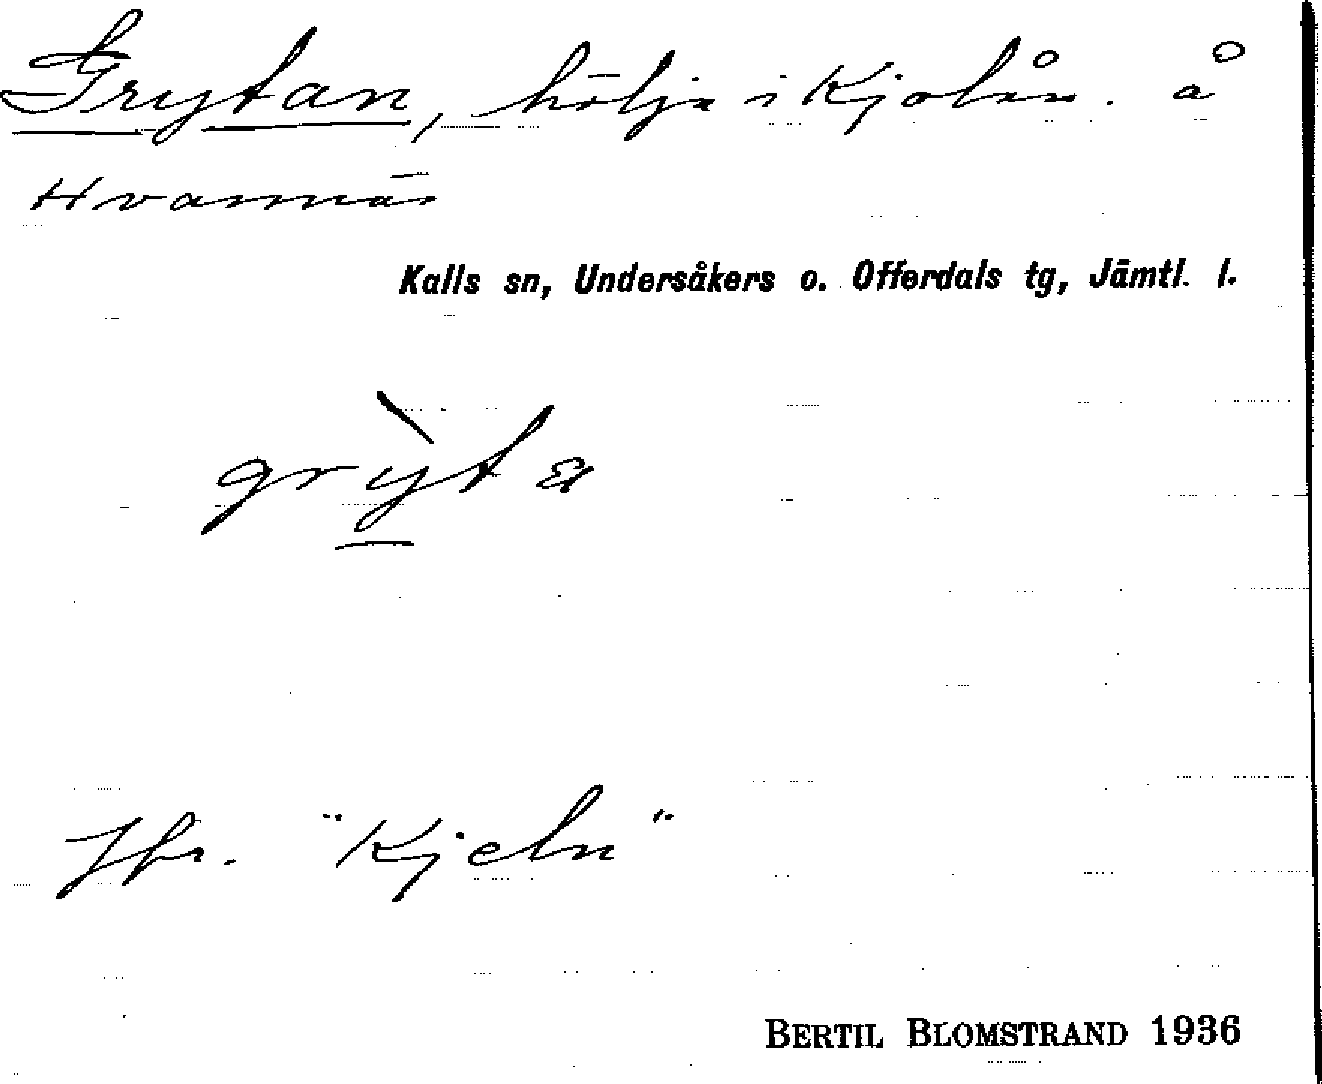 Grytan, hölja i Kjolån. å
Hvannäs
Kalls sn, Undersåkers o. Offerdals tg, Jämtl. l.
grỳta
Jfr. "Kjeln"
BERTIL BLOMSTRAND 1936